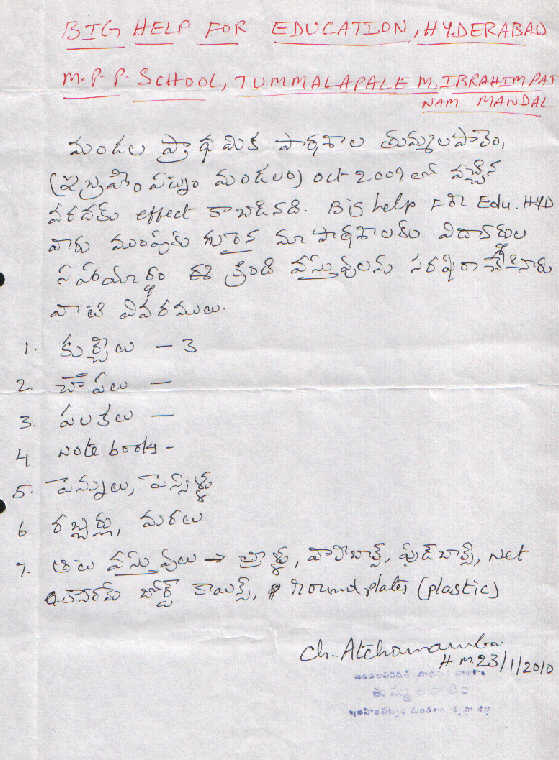 BIG HELP FOR EDUCATION, HYDERABAD
M.P.P. SCHOOL, TUMMALAPALE M, IBRAHIMPAT
NAM MANDAL
మండల ప్రాథమిక పాఠశాల తుమ్మలపాలెం,
(ఇబ్రహీం పట్నం మండలం) oct 2009 లో వచ్చిన
వరదకు effect కాబడినది. Big help For Edu. HYD
వారు ముంపుకు గురైన మా పాఠశాలకు విద్యార్థుల
సహాయార్థం ఈ క్రింది వస్తువులను సరఫరా చేసినారు
వాటి వివరములు.
1. కుర్చీలు - 3
2. చాపలు -
3. పలకలు -
4 Note books -
5. పెన్నులు, పెన్సిళ్లు
6 రబ్బర్లు, మరలు
7. ఆట వస్తువులు → బాల్స్, Net
కేరమ్ బోర్డ్ కాయిన్స్, Round plates (plastic)
Ch. Atchamamba
H M 23/1/2010